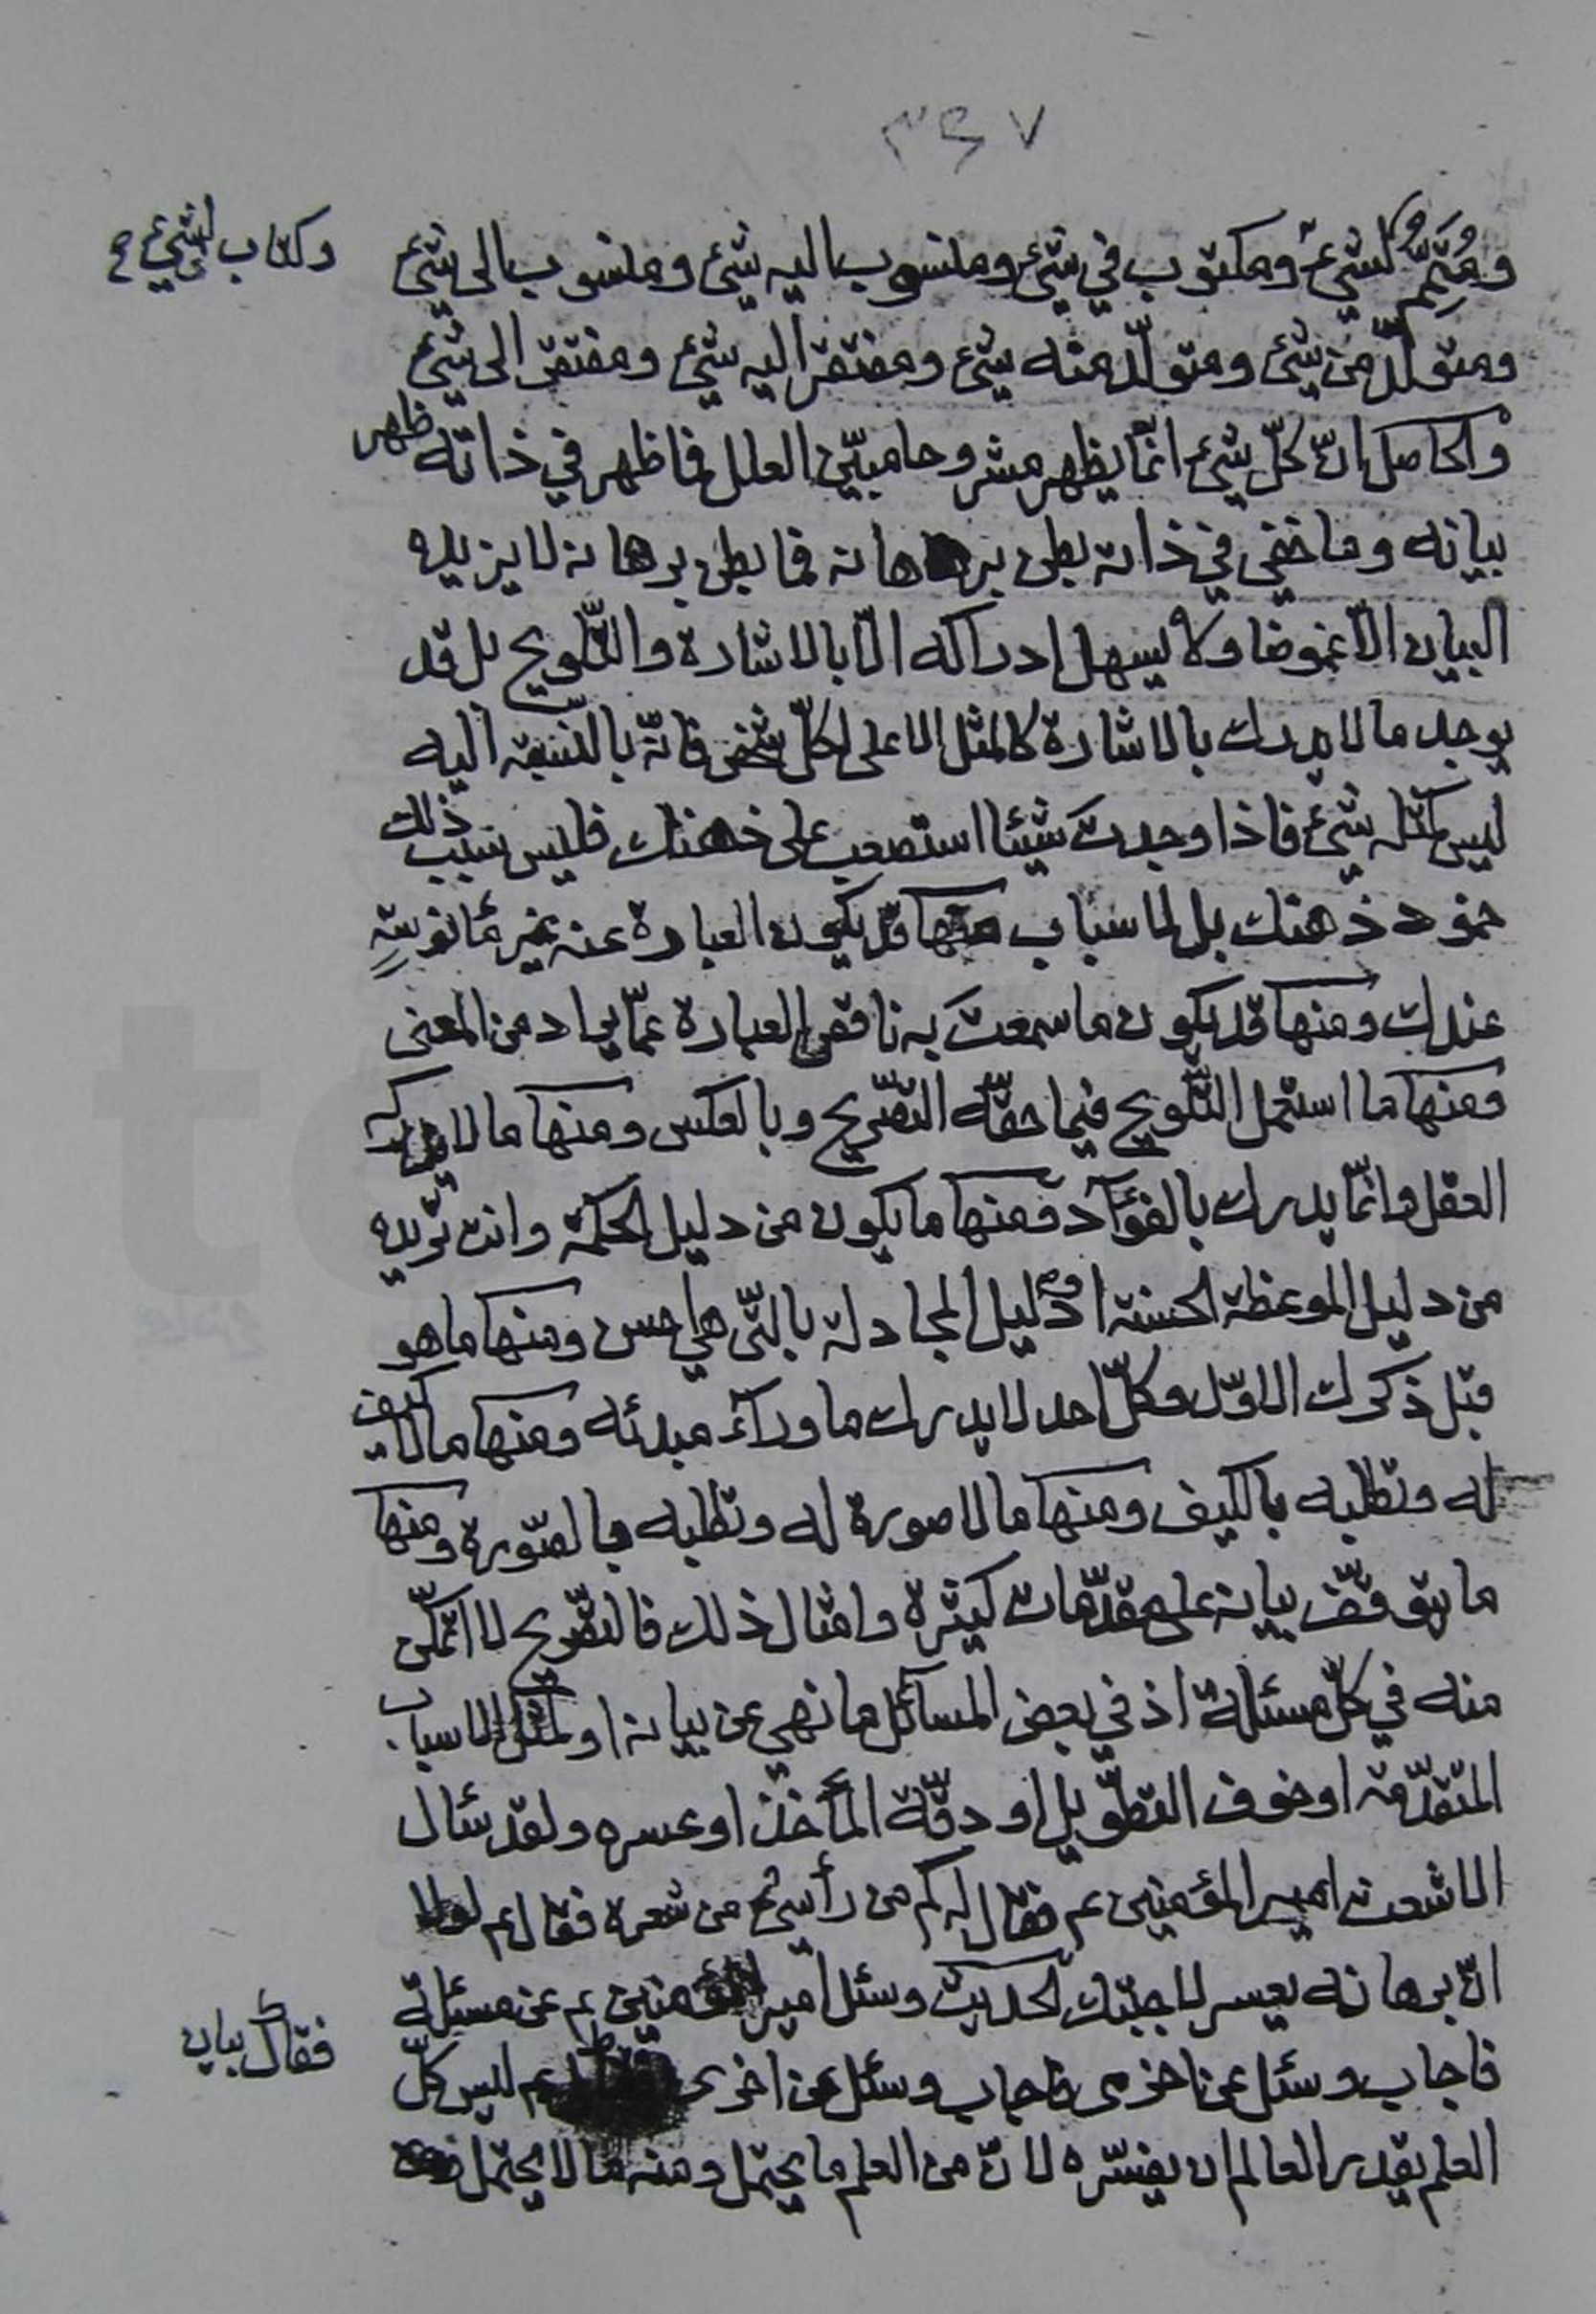 ٣٤٧
ومُتَمِّمٌ لشيءٍ ومكتوب في شئ ومنسوب اليه شئ ومنسوب الى شئ
وكتاب لشيء
ومتولّد من شئ ومتولّد منه شئ ومفتقر اليه شئ ومفتقر الى شئ
والحاصل انّ كلّ شئ انّما يظهر مشروحا مبيّن العلل فما ظهر في ذاته ظهر
بيانه وما خفي في ذاته بطن برهانه فما بطن برهانه لا يزيله
البيان الّا غموضا ولا يسهل ادراكه الّا بالاشارة والتّلويح بل قد
يوجد ما لا يدرك بالاشارة كالمثل الاعلى لكلّ شخص فانّه بالنّسبة اليه
ليس كمثله شئ فاذا وجدتَ شيئا استصعب على ذهنك فليس سبب ذلك
خمود ذهنك بل لاسباب منها قد يكون العبارة عنه غير مأنوسةٍ
عندك ومنها قد يكون ما سمعتَ به ناقص العبارة عمّا يراد من المعنى
ومنها ما استعمل التّلويح فيما حقّه التّصريح وبالعكس ومنها ما لا يدركه
العقل وانّما يدرك بالفؤاد ومنها ما يكون من دليل الحكمة وانت تريده
من دليل الموعظة الحسنة او دليل المجادلة بالّتي هي احسن ومنها ما هو
قبل ذكرك الاوّل وكلّ احد لا يدرك ما وراء مبدئه ومنها ما لا كيف
له وتطلبه بالكيف ومنها ما لا صورة له وتطلبه بالصّورة ومنها
ما يتوقّف بيانه على مقدّمات كثيرة وامثال ذلك فالتّصريح لا اتمكّن
منه في كلّ مسئلة اذ في بعض المسائل ما نهي عن بيانه او لمثل الاسباب
المتقدّمة او خوف التطويل او دقّة المأخذ او عسره ولقد سئال
الاشعث امير المؤمنين عم فقال له كم من رأسي من شعرة فقال عم لولا
انّ برهانه يعسر لاجبتك الحديث وسئل امير المؤمنين عم عن مسئلة
فاجاب وسئل عن اخرى فاجاب وسئل عن اخرى عم ليس كلّ
فقال بيان
العلم يقدر العالم ان يفسّره لانّ من العلم ما يحتمل ومنه ما لا يحتمل